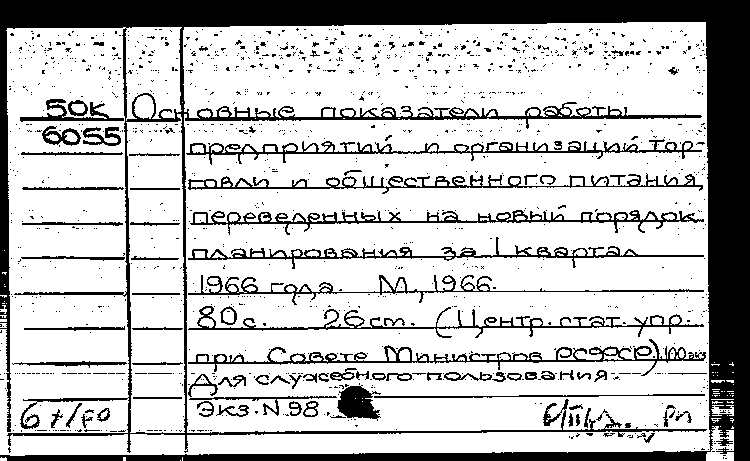 50К Основные показатели работы
6055 предприятий и организаций тор-
говли и общественного питания,
переведенных на новый порядок
планирования за I квартал
1966 года. М., 1966.
80с. 26см. (Центр. стат. упр.
при Совете Министров РСФСР). 100 экз
Для служебного пользования.
Экз. N 98.